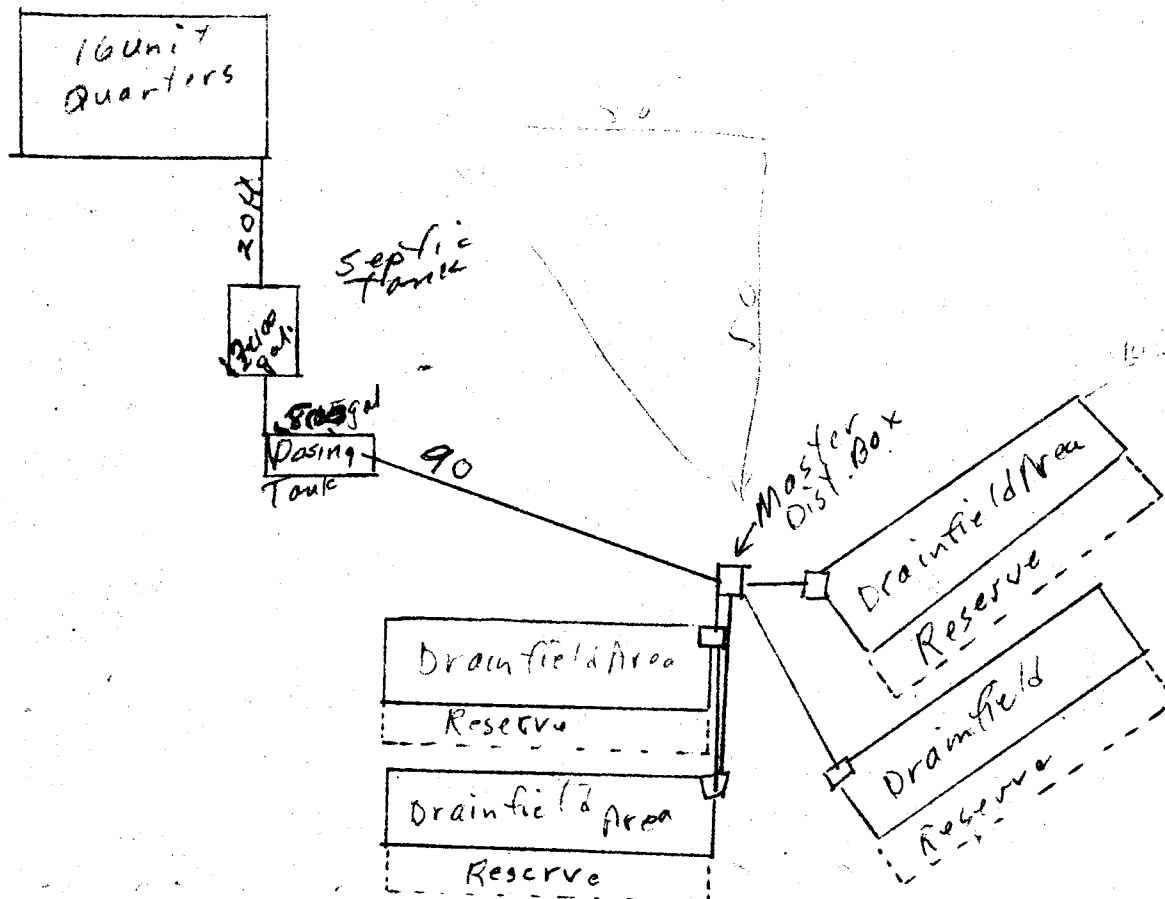 16 Unit
Quarters
20ft
Septic
Tank
gal.
gal
Dosing
Tank
90
50
Master
Dist. Box
Drainfield Area
Reserve
Drainfield
Reserve
Drainfield Area
Reserve
Drainfield Area
Reserve